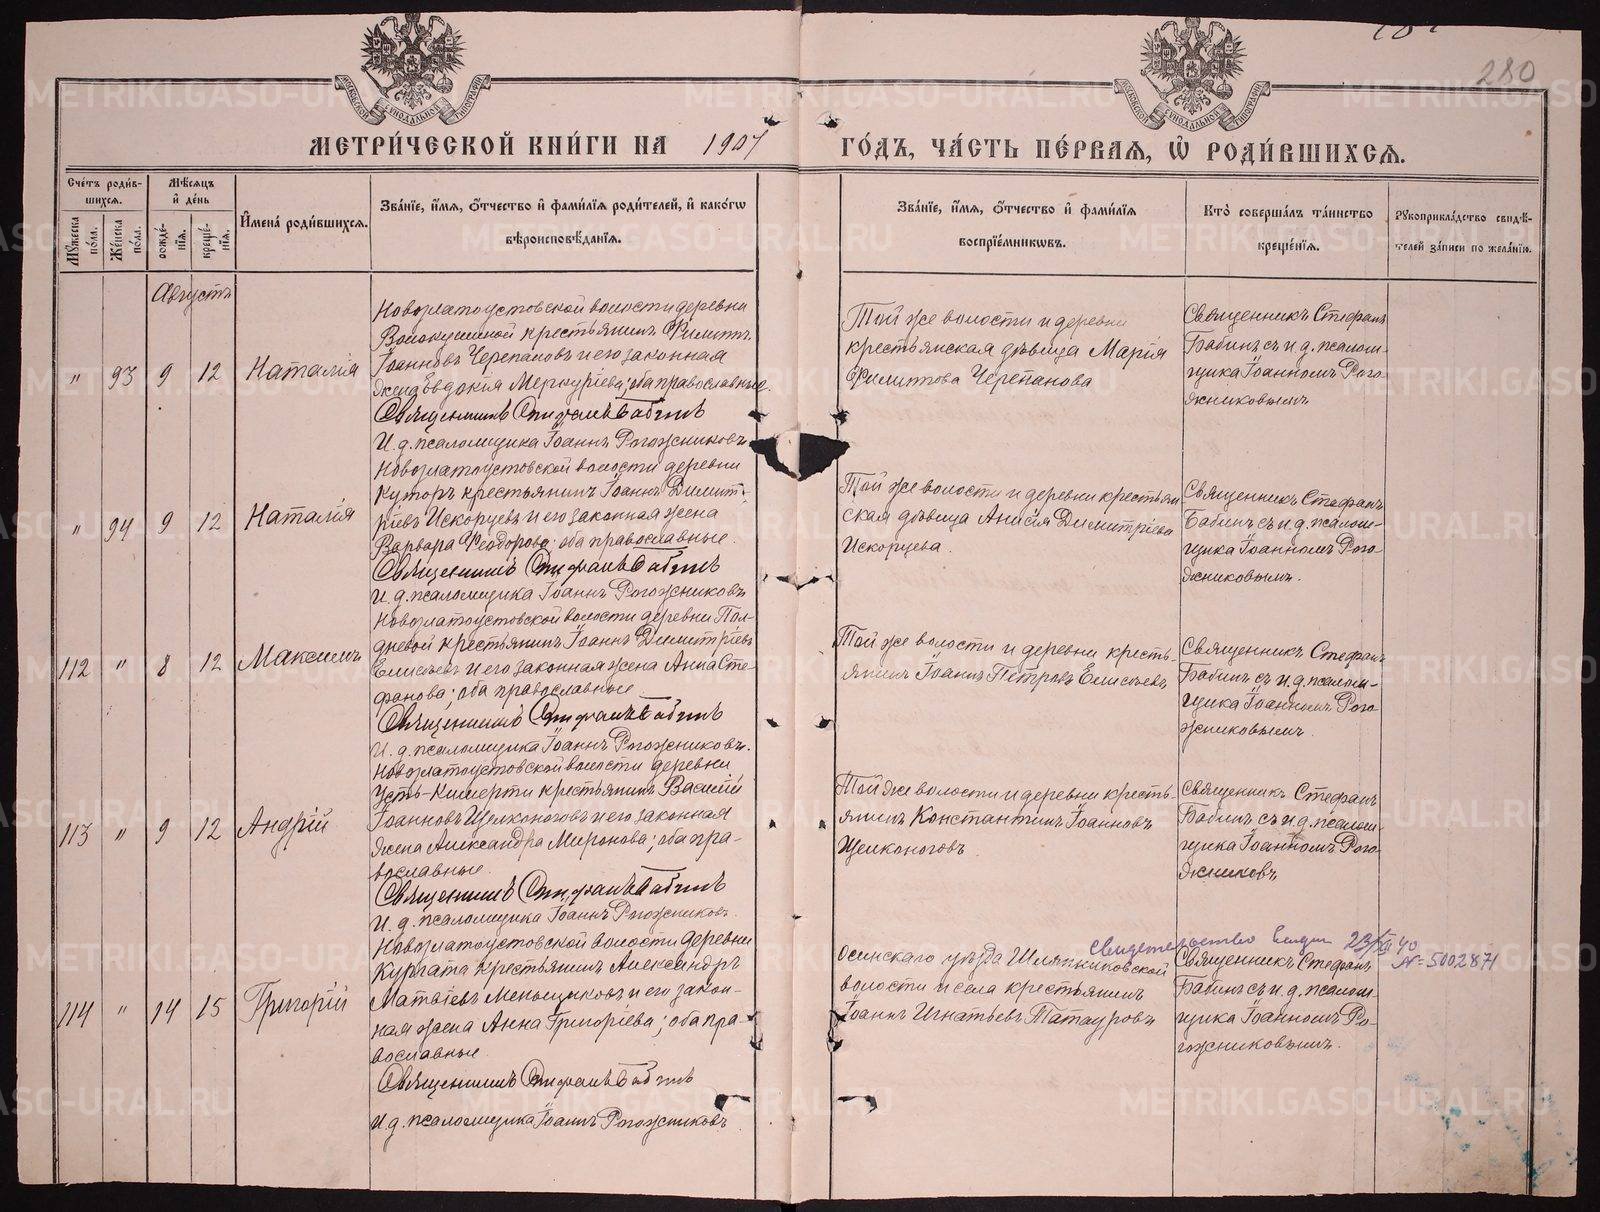 280
МЕТРИ́ЧЕСКОЙ КНИ́ГИ НА 1907 ГО́ДЪ, ЧА́СТЬ ПЕ́РВАЯ, Ѡ РОДИ́ВШИХСЯ.
Сче́тъ роди́в-
шихся.
Му́жеска по́ла.
Же́нска по́ла.
Мѣ́сяцъ
и де́нь
рожде́-
нїя.
креще́-
нїя.
Имена̀ роди́вшихся.
Зва́нїе, и́мя, о́тчество и фами́лїя роди́телей, и како́гѡ
вѣроисповѣ́данїя.
Зва́нїе, и́мя, о́тчество и фами́лїя
воспрїе́мникѡвъ.
Кто̀ соверша́лъ та́инство
креще́нїя.
Рꙋкоприкла́дство свидѣ́-
телей за́писи по жела́нїю.
Августъ
" 93 9 12 Наталія
Новозлатоустовской волости деревни
крестьянинъ Филиппъ
Іоанновъ Черепановъ и его законная
жена Евдокія Меркуріева; оба православные.
Священникъ Стефанъ Бабинъ
И. д. псаломщика Іоаннъ Рогожниковъ
Той же волости и деревни
крестьянская дѣвица Марія
Филиппова Черепанова
Священникъ Стефанъ
Бабинъ съ и. д. псалом-
щика Іоанномъ Рого-
жниковымъ
" 94 9 12 Наталія
Новозлатоустовской волости деревни
крестьянинъ Іоаннъ Димит-
ріевъ Искорцевъ и его законная жена
Варвара Феодорова; оба православные.
Священникъ Стефанъ Бабинъ
И. д. псаломщика Іоаннъ Рогожниковъ
Той же волости и деревни крестьян
ская дѣвица Анисія Димитріева
Искорцева.
Священникъ Стефанъ
Бабинъ съ и. д. псалом-
щика Іоанномъ Рого-
жниковымъ.
112 " 8 12 Максимъ
Новозлатоустовской волости деревни Пол-
дневой крестьянинъ Іоаннъ Димитріевъ
Елисѣевъ и его законная жена Анна Сте-
фанова; оба православные
Священникъ Стефанъ Бабинъ
И. д. псаломщика Іоаннъ Рогожниковъ.
Той же волости и деревни кресть-
янинъ Іоаннъ Петровъ Елисѣевъ
Священникъ Стефанъ
Бабинъ съ и. д. псалом-
щика Іоанномъ Рого
жниковымъ
113 " 9 12 Андрій
Новозлатоустовской волости деревни
Усть-Кишерти крестьянинъ Василій
Іоанновъ Щелконоговъ и его законная
жена Александра Миронова; оба пра-
вославные.
Священникъ Стефанъ Бабинъ
И. д. псаломщика Іоаннъ Рогожниковъ.
Той же волости и деревни кресть-
янинъ Константинъ Іоанновъ
Щелконоговъ
Священникъ Стефанъ
Бабинъ съ и. д. псалом-
щика Іоанномъ Рого
жниковъ
114 " 14 15 Григорій
Новозлатоустовской волости деревни
крестьянинъ Александръ
Матвіевъ Меньщиковъ и его закон-
ная жена Анна Григоріева; оба пра-
вославные
Священникъ Стефанъ Бабинъ
И. д. псаломщика Іоаннъ Рогожниковъ
свидетельство выдан 23/XII 40
№ 5002871
Осинскаго уѣзда Шляпниковской
волости и села крестьянинъ
Іоаннъ Игнатьевъ Татауровъ
Священникъ Стефанъ
Бабинъ съ и. д. псалом-
щика Іоанномъ Ро-
гожниковымъ.
METRIKI.GASO-URAL.RU